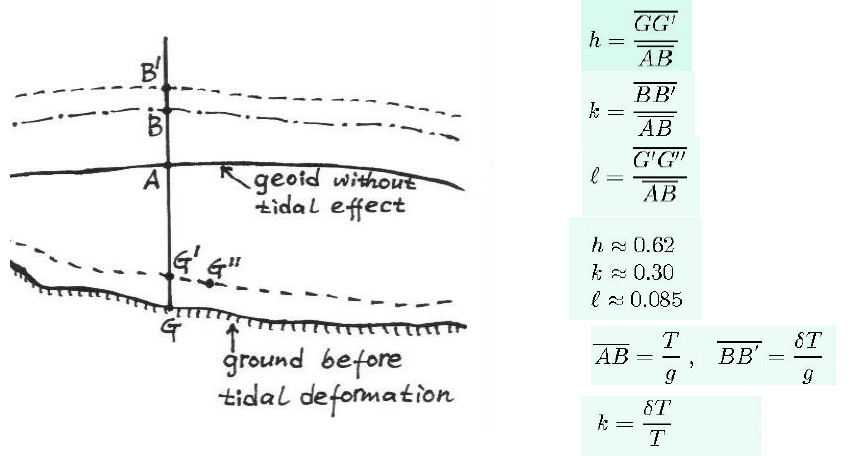 B'
B
A
geoid without
tidal effect
G' G"
G
ground before
tidal deformation
h = GG' / AB
k = BB' / AB
ℓ = G'G" / AB
h ≈ 0.62
k ≈ 0.30
ℓ ≈ 0.085
AB = T / g , BB' = δT / g
k = δT / T